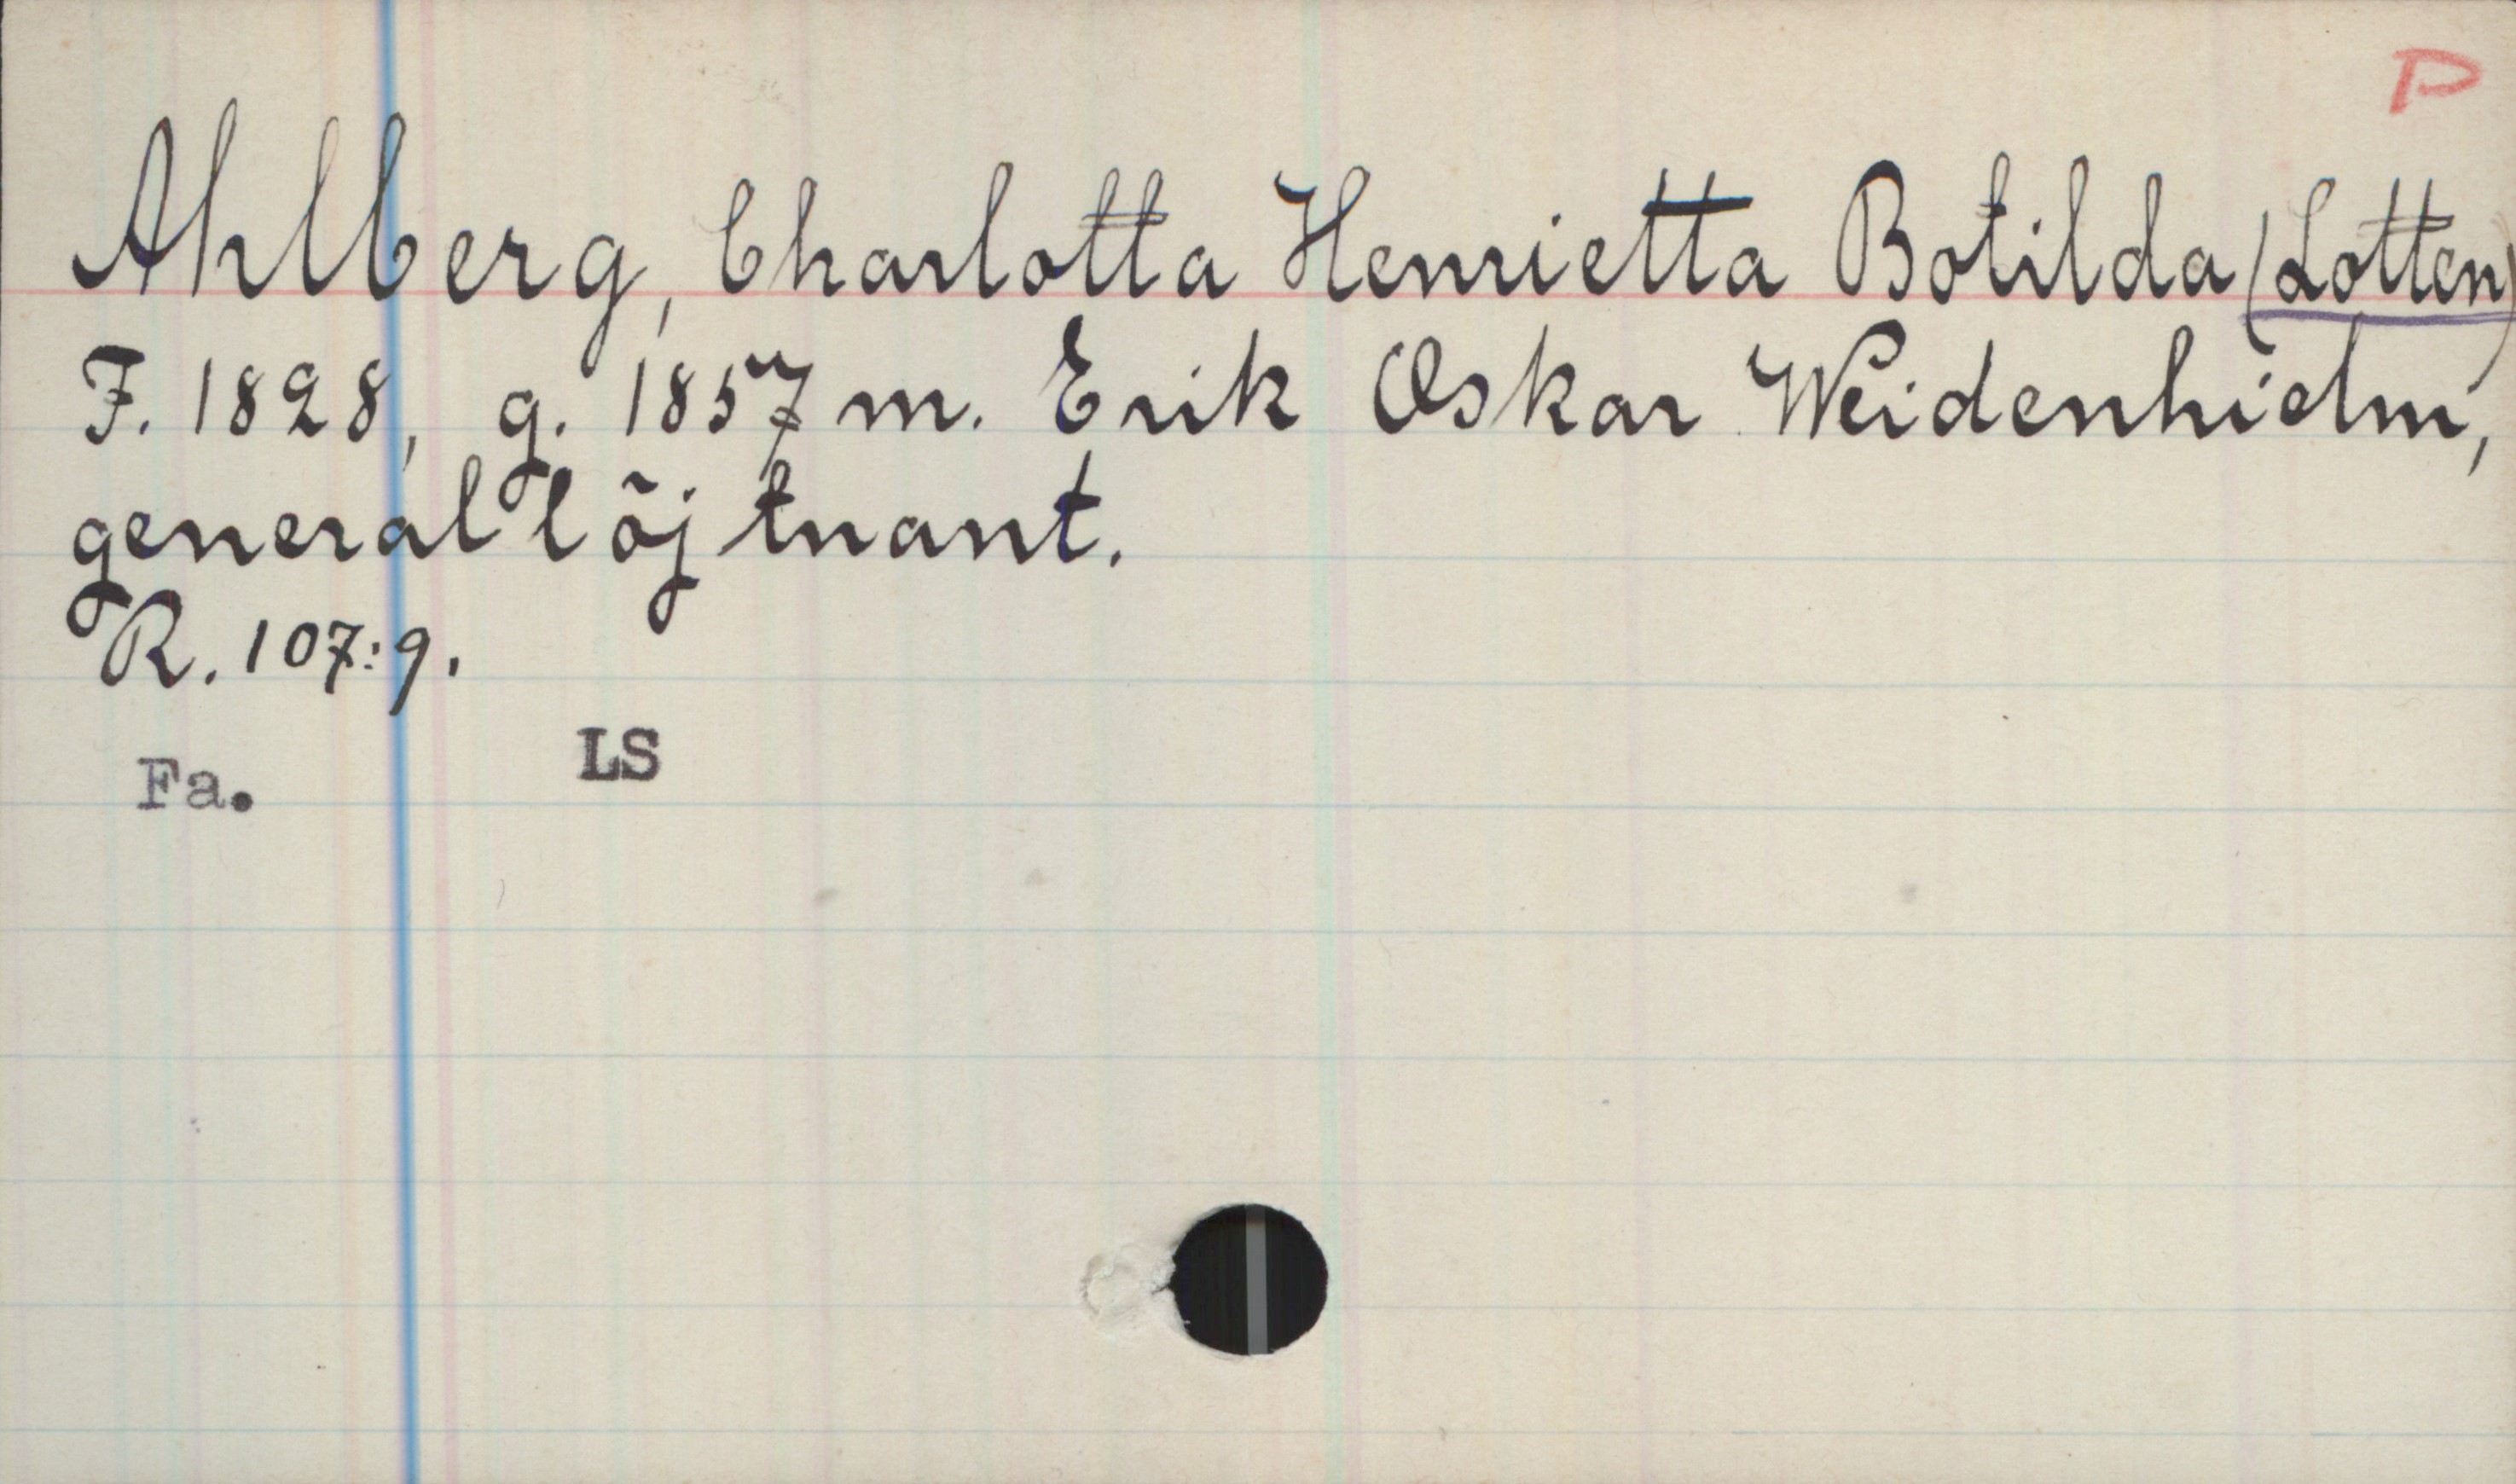 P
Ahlberg, Charlotta Henrietta Botilda (Lotten)
F. 1828, g. 1857 m. Erik Oskar Weidenhielm,
generallöjtnant.
R. 107:9.
LS
Fa.